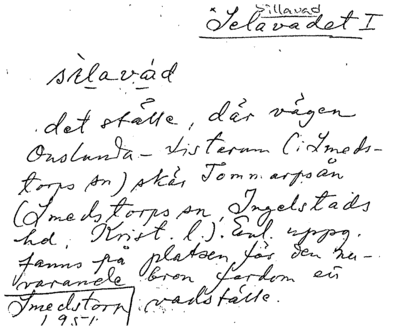 Sillavad
*Selavadet I
silavad
det ställe, där vägen
Onslunda – Listarum (i Smeds-
torps sn) skär Tommarpsån
(Smedstorps sn, Ingelstads
hd, Krist. l.). Enl. uppg.
fanns på platsen för den nu-
varande bron fordom ett
vadställe.
Smedstorp
1951.